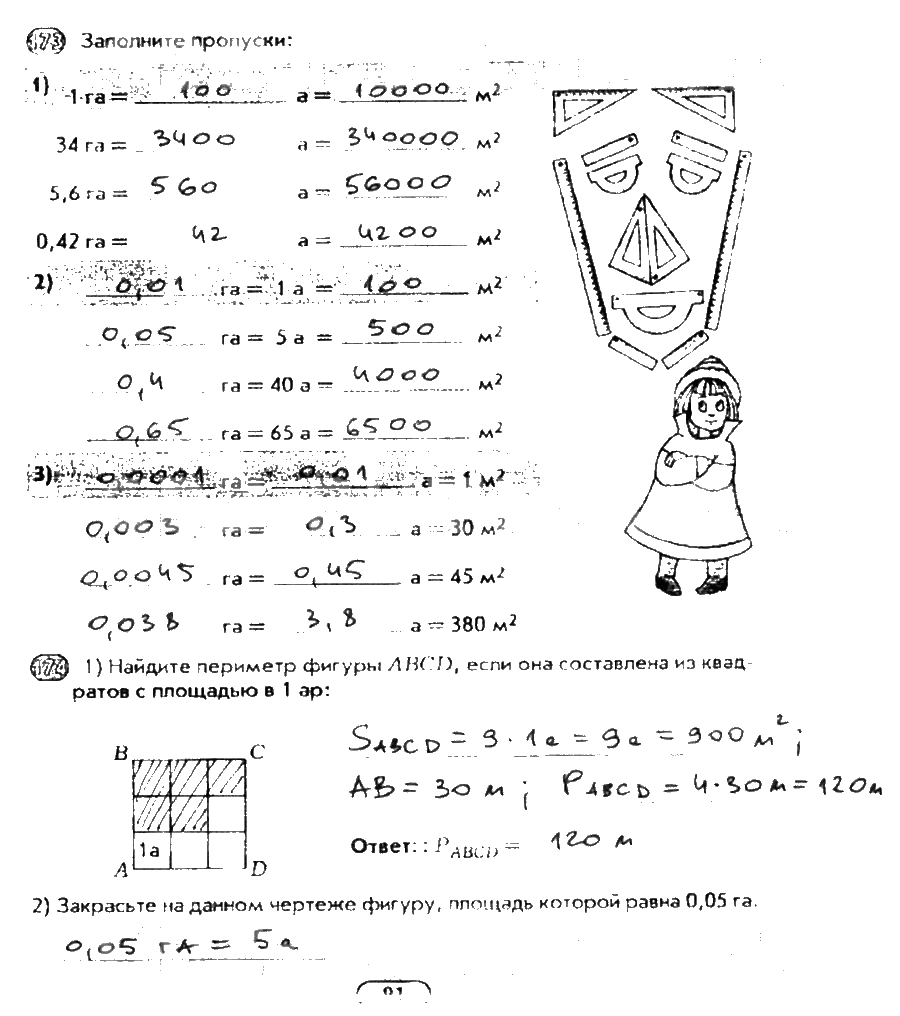 173 Заполните пропуски:
1) 1 га = 100 а = 10000 м²
34 га = 3400 а = 340000 м²
5,6 га = 560 а = 56000 м²
0,42 га = 42 а = 4200 м²
2) 0,01 га = 1 а = 100 м²
0,05 га = 5 а = 500 м²
0,4 га = 40 а = 4000 м²
0,65 га = 65 а = 6500 м²
3) 0,0001 га = 0,01 а = 1 м²
0,003 га = 0,3 а = 30 м²
0,0045 га = 0,45 а = 45 м²
0,038 га = 3,8 а = 380 м²
174 1) Найдите периметр фигуры ABCD, если она составлена из квад-
ратов с площадью в 1 ар:
B C
1а
A D
S ABCD = 9 · 1а = 9а = 900 м²;
AB = 30 м; P ABCD = 4·30м = 120м
Ответ: : P ABCD = 120 м
2) Закрасьте на данном чертеже фигуру, площадь которой равна 0,05 га.
0,05 га = 5а